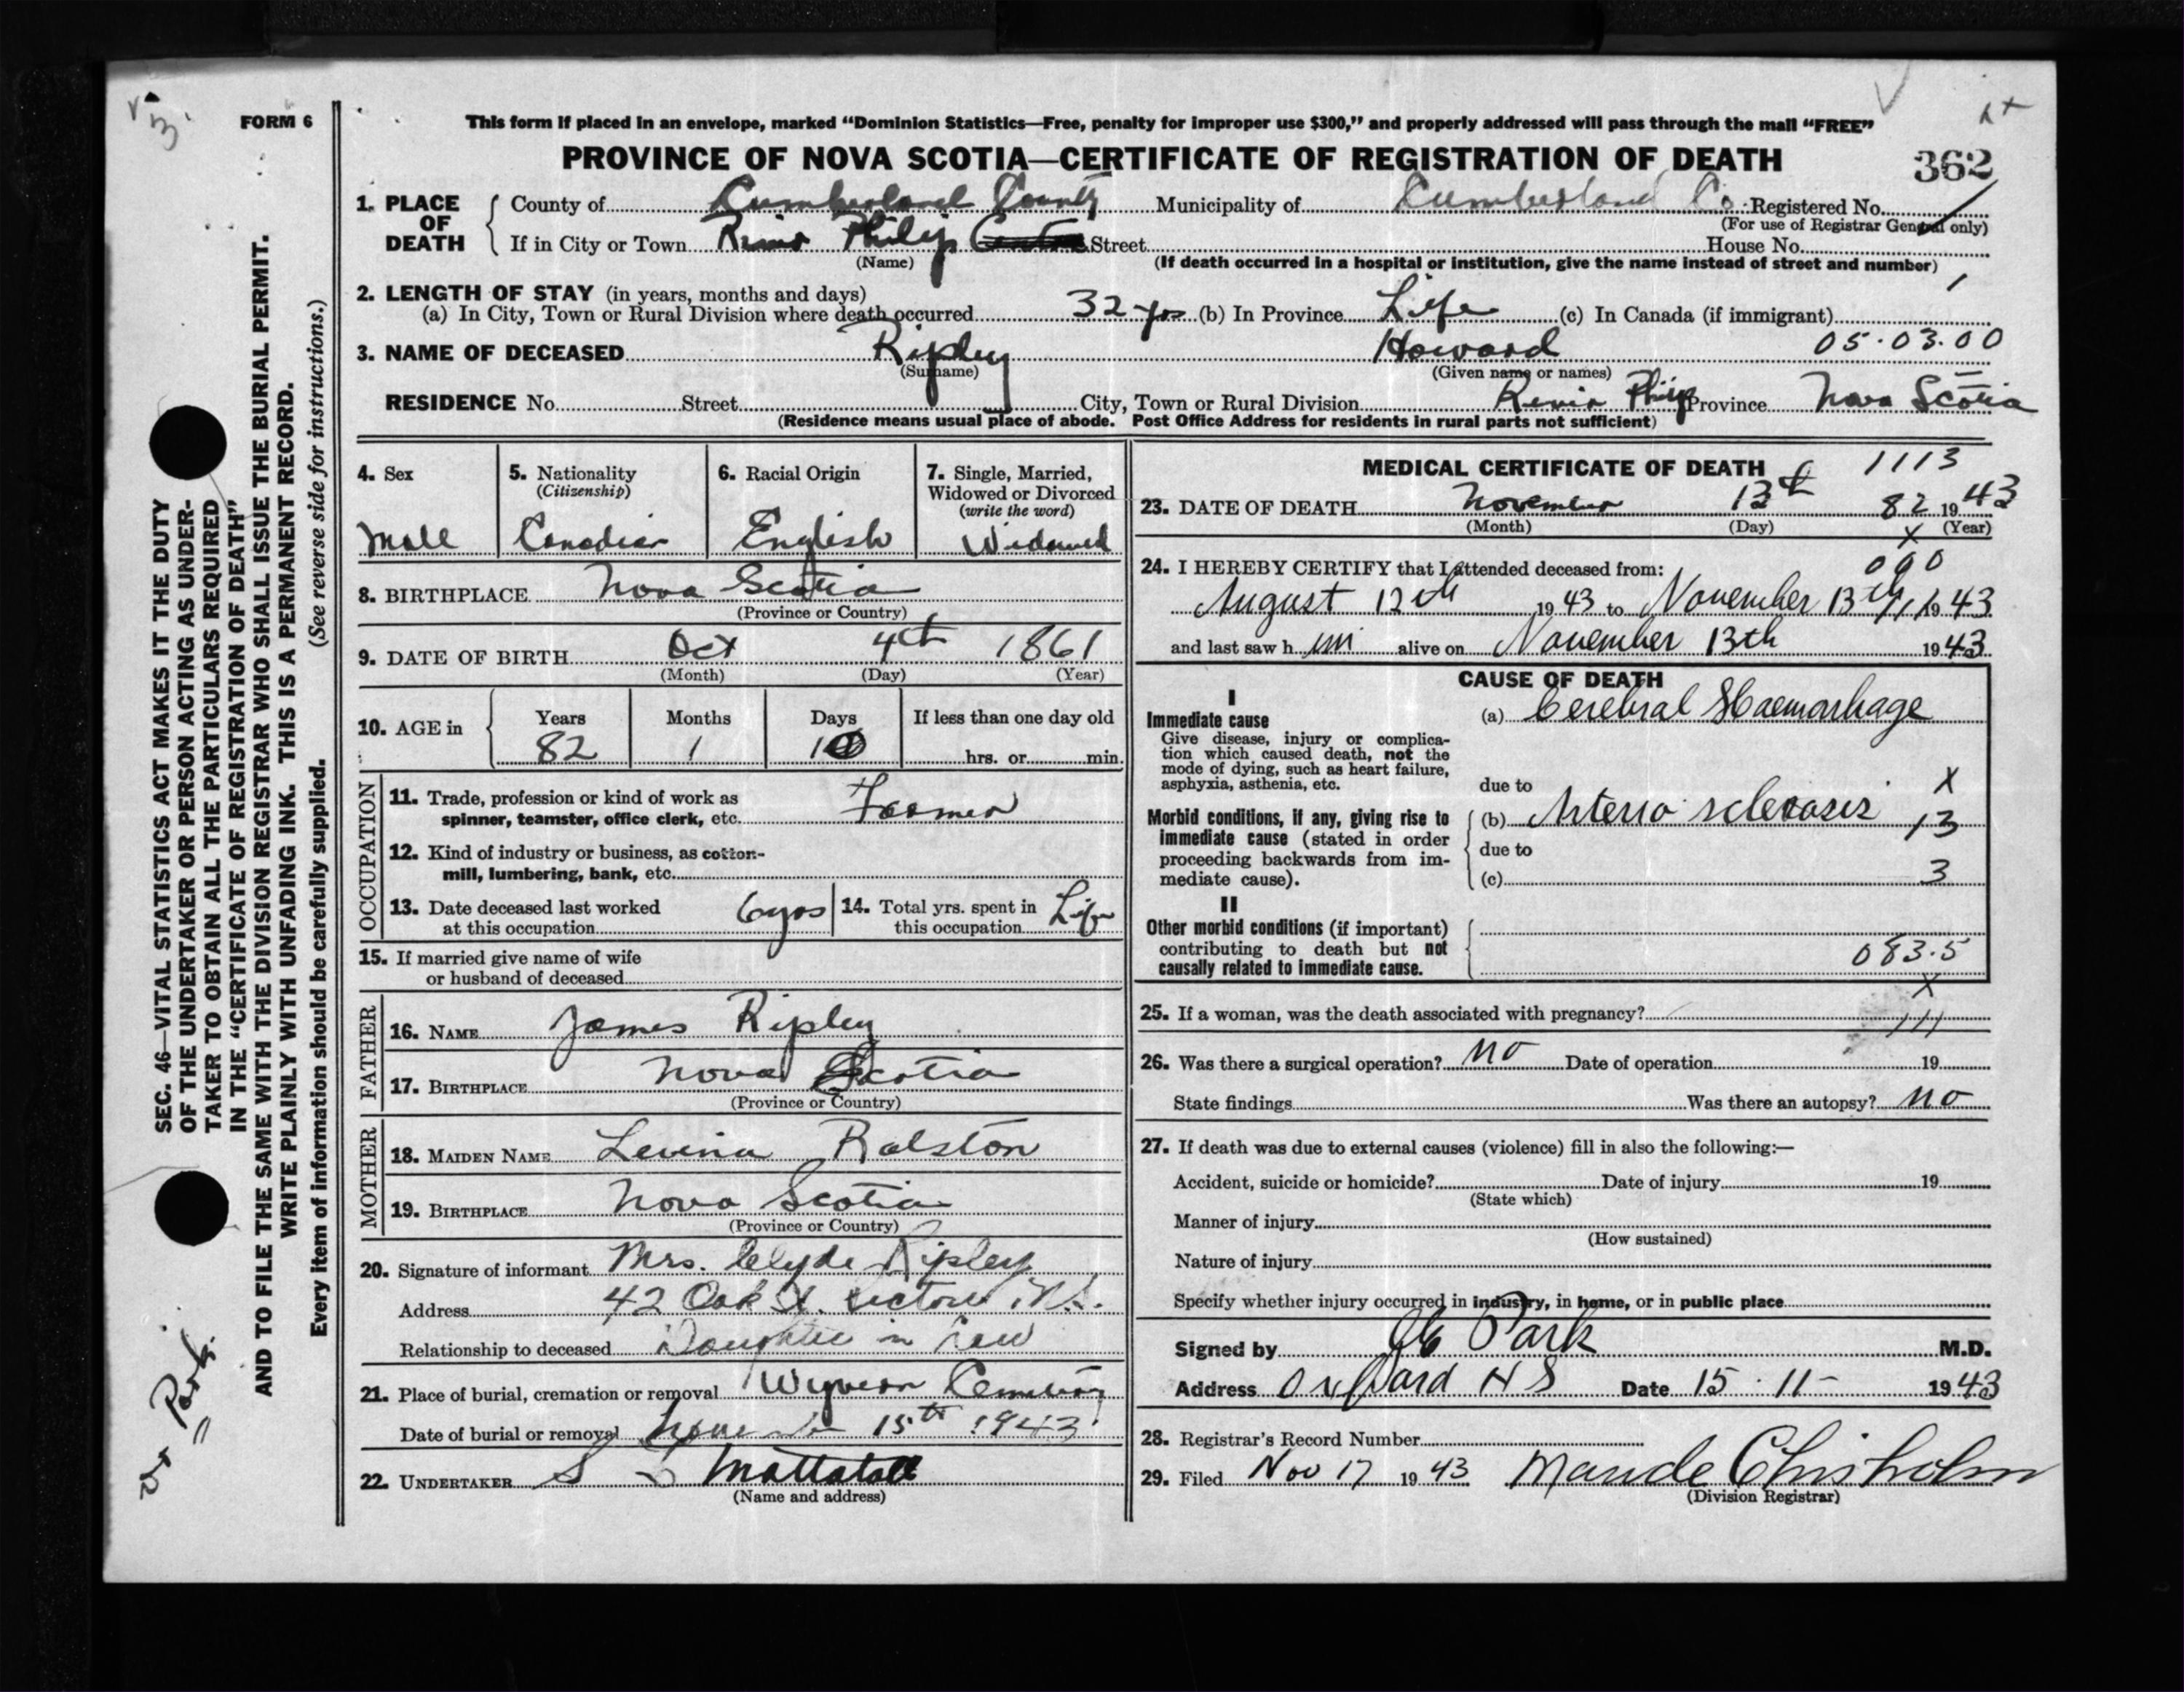 FORM 6
This form if placed in an envelope, marked “Dominion Statistics—Free, penalty for improper use $300,” and properly addressed will pass through the mail “FREE”
PROVINCE OF NOVA SCOTIA—CERTIFICATE OF REGISTRATION OF DEATH
362
1. PLACE OF DEATH
County of Cumberland County Municipality of Cumberland Co. Registered No.
(For use of Registrar General only)
If in City or Town River Philip Street House No.
(Name) (If death occurred in a hospital or institution, give the name instead of street and number)
2. LENGTH OF STAY (in years, months and days)
(a) In City, Town or Rural Division where death occurred 32 yrs (b) In Province Life (c) In Canada (if immigrant)
3. NAME OF DECEASED Ripley Howard 05.03.00
(Surname) (Given name or names)
RESIDENCE No. Street City, Town or Rural Division River Philip Province Nova Scotia
(Residence means usual place of abode. Post Office Address for residents in rural parts not sufficient)
4. Sex
Male
5. Nationality
(Citizenship)
Canadian
6. Racial Origin
English
7. Single, Married,
Widowed or Divorced
(write the word)
Widowed
8. BIRTHPLACE Nova Scotia
(Province or Country)
9. DATE OF BIRTH Oct 4th 1861
(Month) (Day) (Year)
10. AGE in Years Months Days If less than one day old
82 1 hrs. or min.
OCCUPATION
11. Trade, profession or kind of work as
spinner, teamster, office clerk, etc. Farmer
12. Kind of industry or business, as cotton-
mill, lumbering, bank, etc.
13. Date deceased last worked
at this occupation 6 yrs
14. Total yrs. spent in
this occupation Life
15. If married give name of wife
or husband of deceased
FATHER
16. NAME James Ripley
17. BIRTHPLACE Nova Scotia
(Province or Country)
MOTHER
18. MAIDEN NAME Levina Ralston
19. BIRTHPLACE Nova Scotia
(Province or Country)
20. Signature of informant Mrs. Clyde Ripley
Address 42 Oak St.
Relationship to deceased Daughter in law
21. Place of burial, cremation or removal Wyvern Cemetery
Date of burial or removal November 15th 1943
22. UNDERTAKER S Mattatall
(Name and address)
MEDICAL CERTIFICATE OF DEATH 1113
23. DATE OF DEATH November 13th 82 1943
(Month) (Day) (Year)
x
24. I HEREBY CERTIFY that I attended deceased from: 000
August 12th 1943 to November 13th 1943
and last saw him alive on November 13th 1943
CAUSE OF DEATH
I
Immediate cause
Give disease, injury or complica-
tion which caused death, not the
mode of dying, such as heart failure,
asphyxia, asthenia, etc.
(a) Cerebral Haemorrhage
due to x
Morbid conditions, if any, giving rise to
immediate cause (stated in order
proceeding backwards from im-
mediate cause).
(b) Arterio sclerosis 13
due to
(c) 3
II
Other morbid conditions (if important)
contributing to death but not
causally related to immediate cause.
083.5
x
25. If a woman, was the death associated with pregnancy? 111
26. Was there a surgical operation? no Date of operation 19
State findings Was there an autopsy? no
27. If death was due to external causes (violence) fill in also the following:—
Accident, suicide or homicide? Date of injury 19
(State which)
Manner of injury
(How sustained)
Nature of injury
Specify whether injury occurred in industry, in home, or in public place
Signed by Park M.D.
Address Oxford NS Date 15-11- 1943
28. Registrar's Record Number
29. Filed Nov 17 1943 Maude Chisholm
(Division Registrar)
SEC. 46—VITAL STATISTICS ACT MAKES IT THE DUTY
OF THE UNDERTAKER OR PERSON ACTING AS UNDER-
TAKER TO OBTAIN ALL THE PARTICULARS REQUIRED
IN THE “CERTIFICATE OF REGISTRATION OF DEATH”
AND TO FILE THE SAME WITH THE DIVISION REGISTRAR WHO SHALL ISSUE THE BURIAL PERMIT.
WRITE PLAINLY WITH UNFADING INK. THIS IS A PERMANENT RECORD.
Every item of information should be carefully supplied. (See reverse side for instructions.)
Dr Park